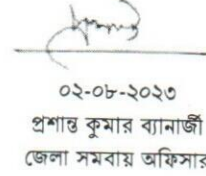 ০২-০৮-২০২৩
প্রশান্ত কুমার ব্যানার্জী
জেলা সমবায় অফিসার